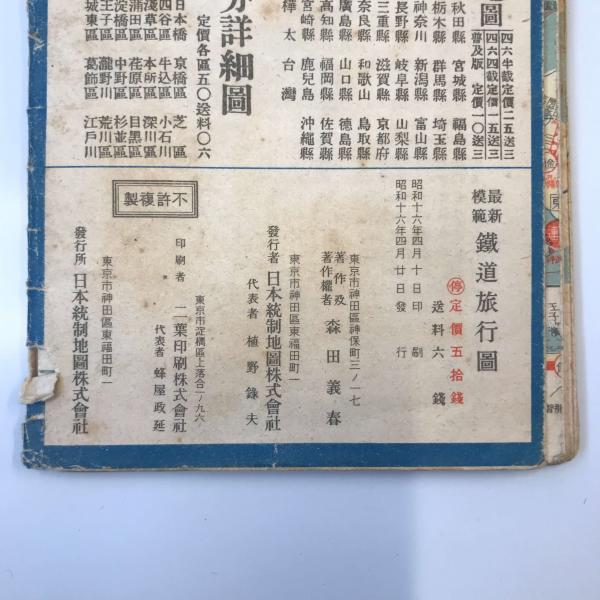 圖
四六半截定價二五送三
四六四截定價一五送三
普及版 定價一〇送三
秋田縣 宮城縣 福島縣
栃木縣 群馬縣 埼玉縣
神奈川 新潟縣 富山縣
長野縣 岐阜縣 山梨縣
三重縣 滋賀縣 京都府
奈良縣 和歌山 鳥取縣
廣島縣 山口縣 德島縣
高知縣 福岡縣 佐賀縣
宮崎縣 鹿兒島 沖繩縣
樺太 台灣
分詳細圖
定價各區五〇送料〇六
日本橋 京橋區 芝區
四谷區 牛込區 小石川
淺草區 本所區 深川區
蒲田區 荏原區 目黑區
淀橋區 中野區 杉並區
王子區 瀧野川 荒川區
城東區 葛飾區 江戶川
最新模範 鐵道旅行圖
停定價五拾錢
送料六錢
昭和十六年四月十日印刷
昭和十六年四月廿日發行
東京市神田區神保町三ノ一七
著作及著作權者 森田義春
東京市神田區東福田町一
發行者 日本統制地圖株式會社
代表者 植野錄夫
東京市淀橋區上落合一ノ九六
印刷者 二葉印刷株式會社
代表者 蜂屋政延
東京市神田區東福田町一
發行所 日本統制地圖株式會社
不許複製